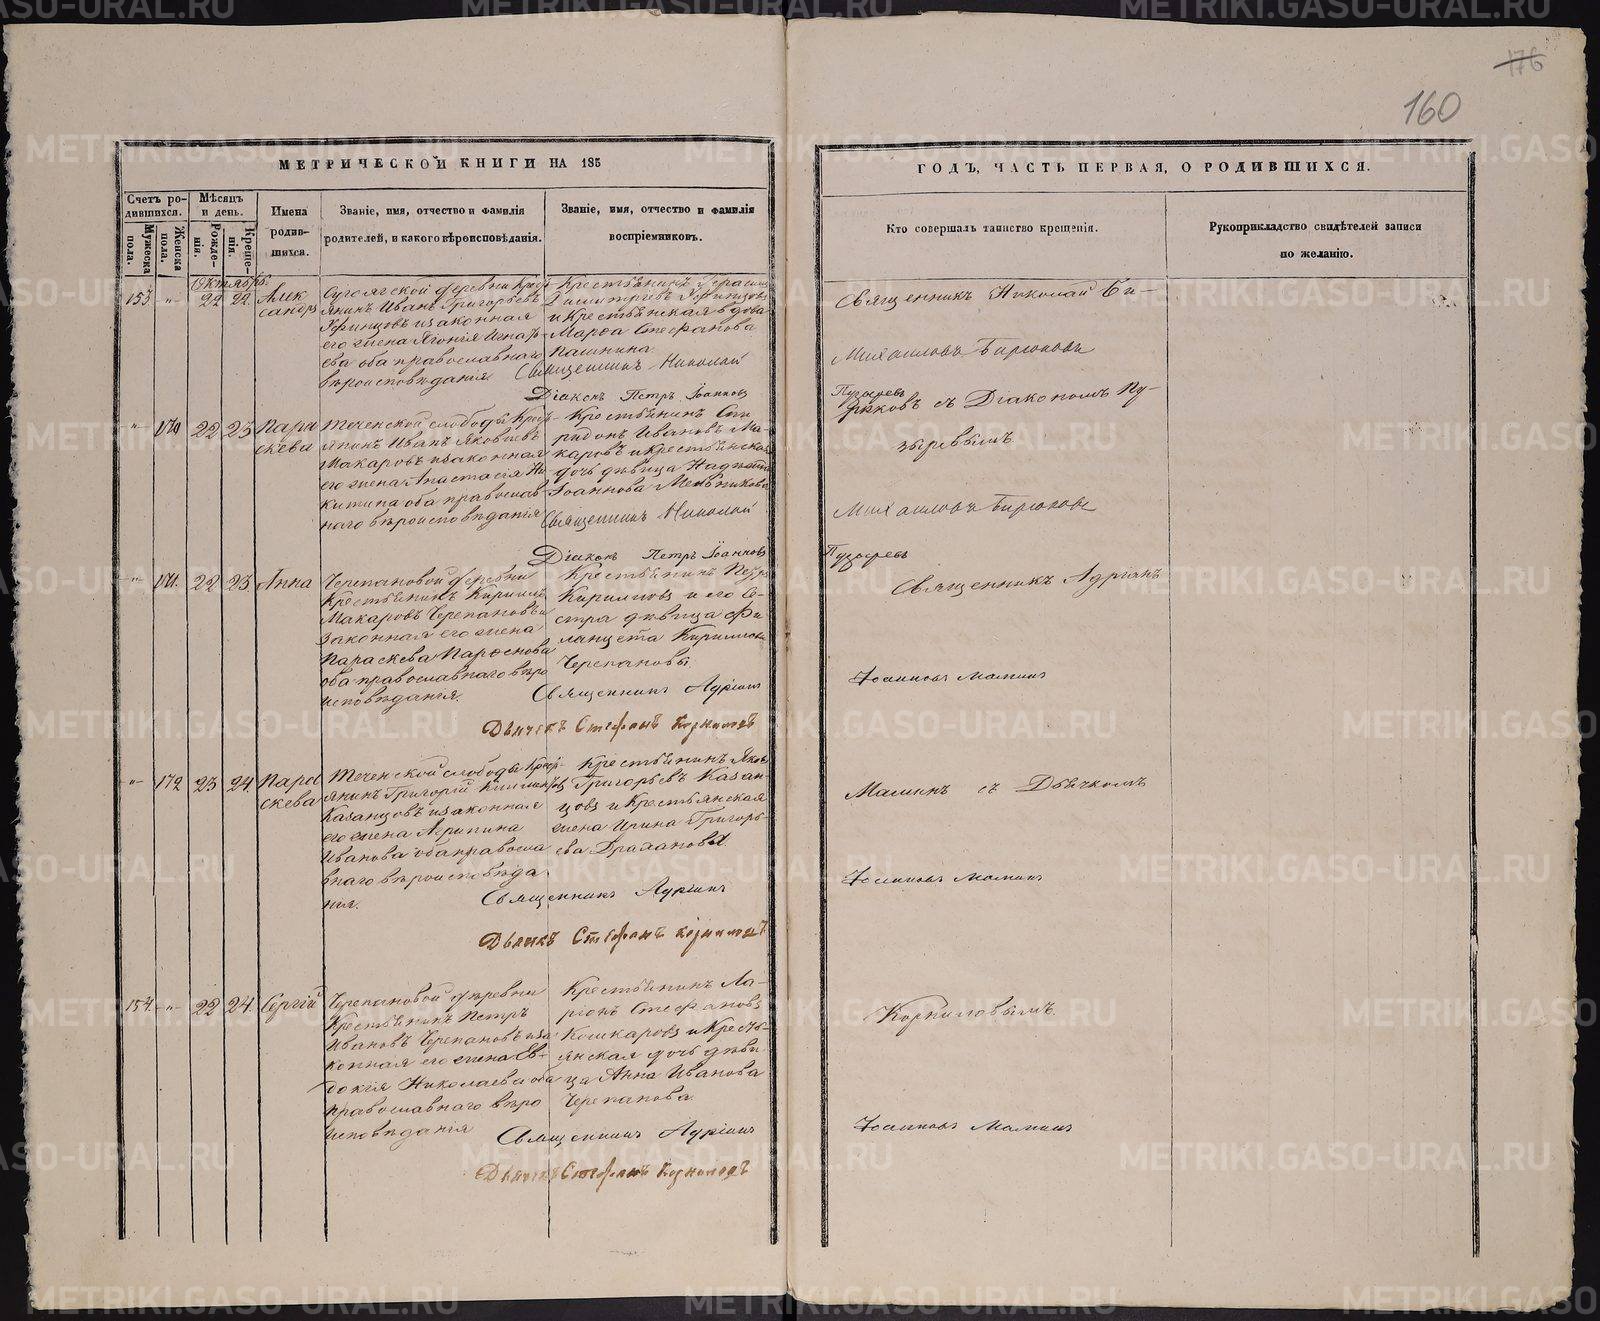 176
160
МЕТРИЧЕСКОЙ КНИГИ НА 185
ГОДЪ, ЧАСТЬ ПЕРВАЯ, О РОДИВШИХСЯ.
Счетъ ро-
дившихся.
Мужеска пола.
Женска пола.
Мѣсяцъ
и день.
Рожде-
нія.
Креще-
нія.
Имена
родив-
шихся.
Званіе, имя, отчество и фамилія
родителей, и какого вѣроисповѣданія.
Званіе, имя, отчество и фамилія
воспріемниковъ.
Кто совершалъ таинство крещенія.
Рукоприкладство свидѣтелей записи
по желанію.
Октябрь.
153 " 22 22. Алек
сандръ
деревни Крест
янинъ Иванъ Григорьевъ
изаконная
его жена
ева оба православнаго
вѣроисповѣданія
Крестьянинъ Герасимъ
Димитріевъ
и Крестьянская вдова
Марѳа Стефанова
Пашнина.
Священникъ Николай
Діаконъ Петръ Іоанновъ
Священникъ Николай Би-
Михаиловъ Бирюковъ
Пузыревъ
рюковъ съ Діакономъ Пу-
зыревымъ.
" 170 22 23 Пара
скева
Теченской слободы Крест
янинъ Иванъ Яковлевъ
Макаровъ изаконная
его жена Анастасія Ни
китина оба православ
наго вѣроисповѣданія
Крестьянинъ Спи
ридонъ Ивановъ Ма-
каровъ и крестьянская
дочь дѣвица Надежда
Іоаннова Мельникова
Священникъ Николай
Діаконъ Петръ Іоанновъ
Михаиловъ Бирюковъ
Пузыревъ
" 171. 22 23. Анна
Черепановой деревни
Крестьянинъ Кирилъ
Макаровъ Черепановъ и
законная его жена
Параскева Парѳенова
оба православнаго вѣро
исповѣданія.
Крестьянинъ Петръ
Кириловъ и его се-
стра дѣвица Фи
лицата Кирилова
Черепановы.
Священникъ Адріанъ
Дьячекъ Стефанъ Корниловъ
Священникъ Адріанъ
Іоанновъ Маминъ
" 172 23 24. Пара
скева
Теченской слободы Крест-
янинъ Григорій
Казанцовъ изаконная
его жена Агрипина
Иванова оба правосла
внаго вѣроисповѣда
нія.
Крестьянинъ Яковъ
Григорьевъ Казан-
цовъ и Крестьянская
жена Ирина Григорь-
ева
Священникъ Адріанъ
Дьячекъ Стефанъ Корниловъ
Маминъ съ Дьячкомъ
Іоанновъ Маминъ
154. " 22 24. Сергій
Черепановой деревни
Крестьянинъ Петръ
Ивановъ Черепановъ иза
конная его жена Ев-
докія Николаева оба
православнаго вѣро
исповѣданія
Крестьянинъ Ла-
ріонъ Стефановъ
Кошкаровъ и Кресть-
янская дочь дѣви
ца Анна Иванова
Черепанова.
Священникъ Адріанъ
Дьячекъ Стефанъ Корниловъ
Корниловымъ.
Іоанновъ Маминъ
METRIKI.GASO-URAL.RU